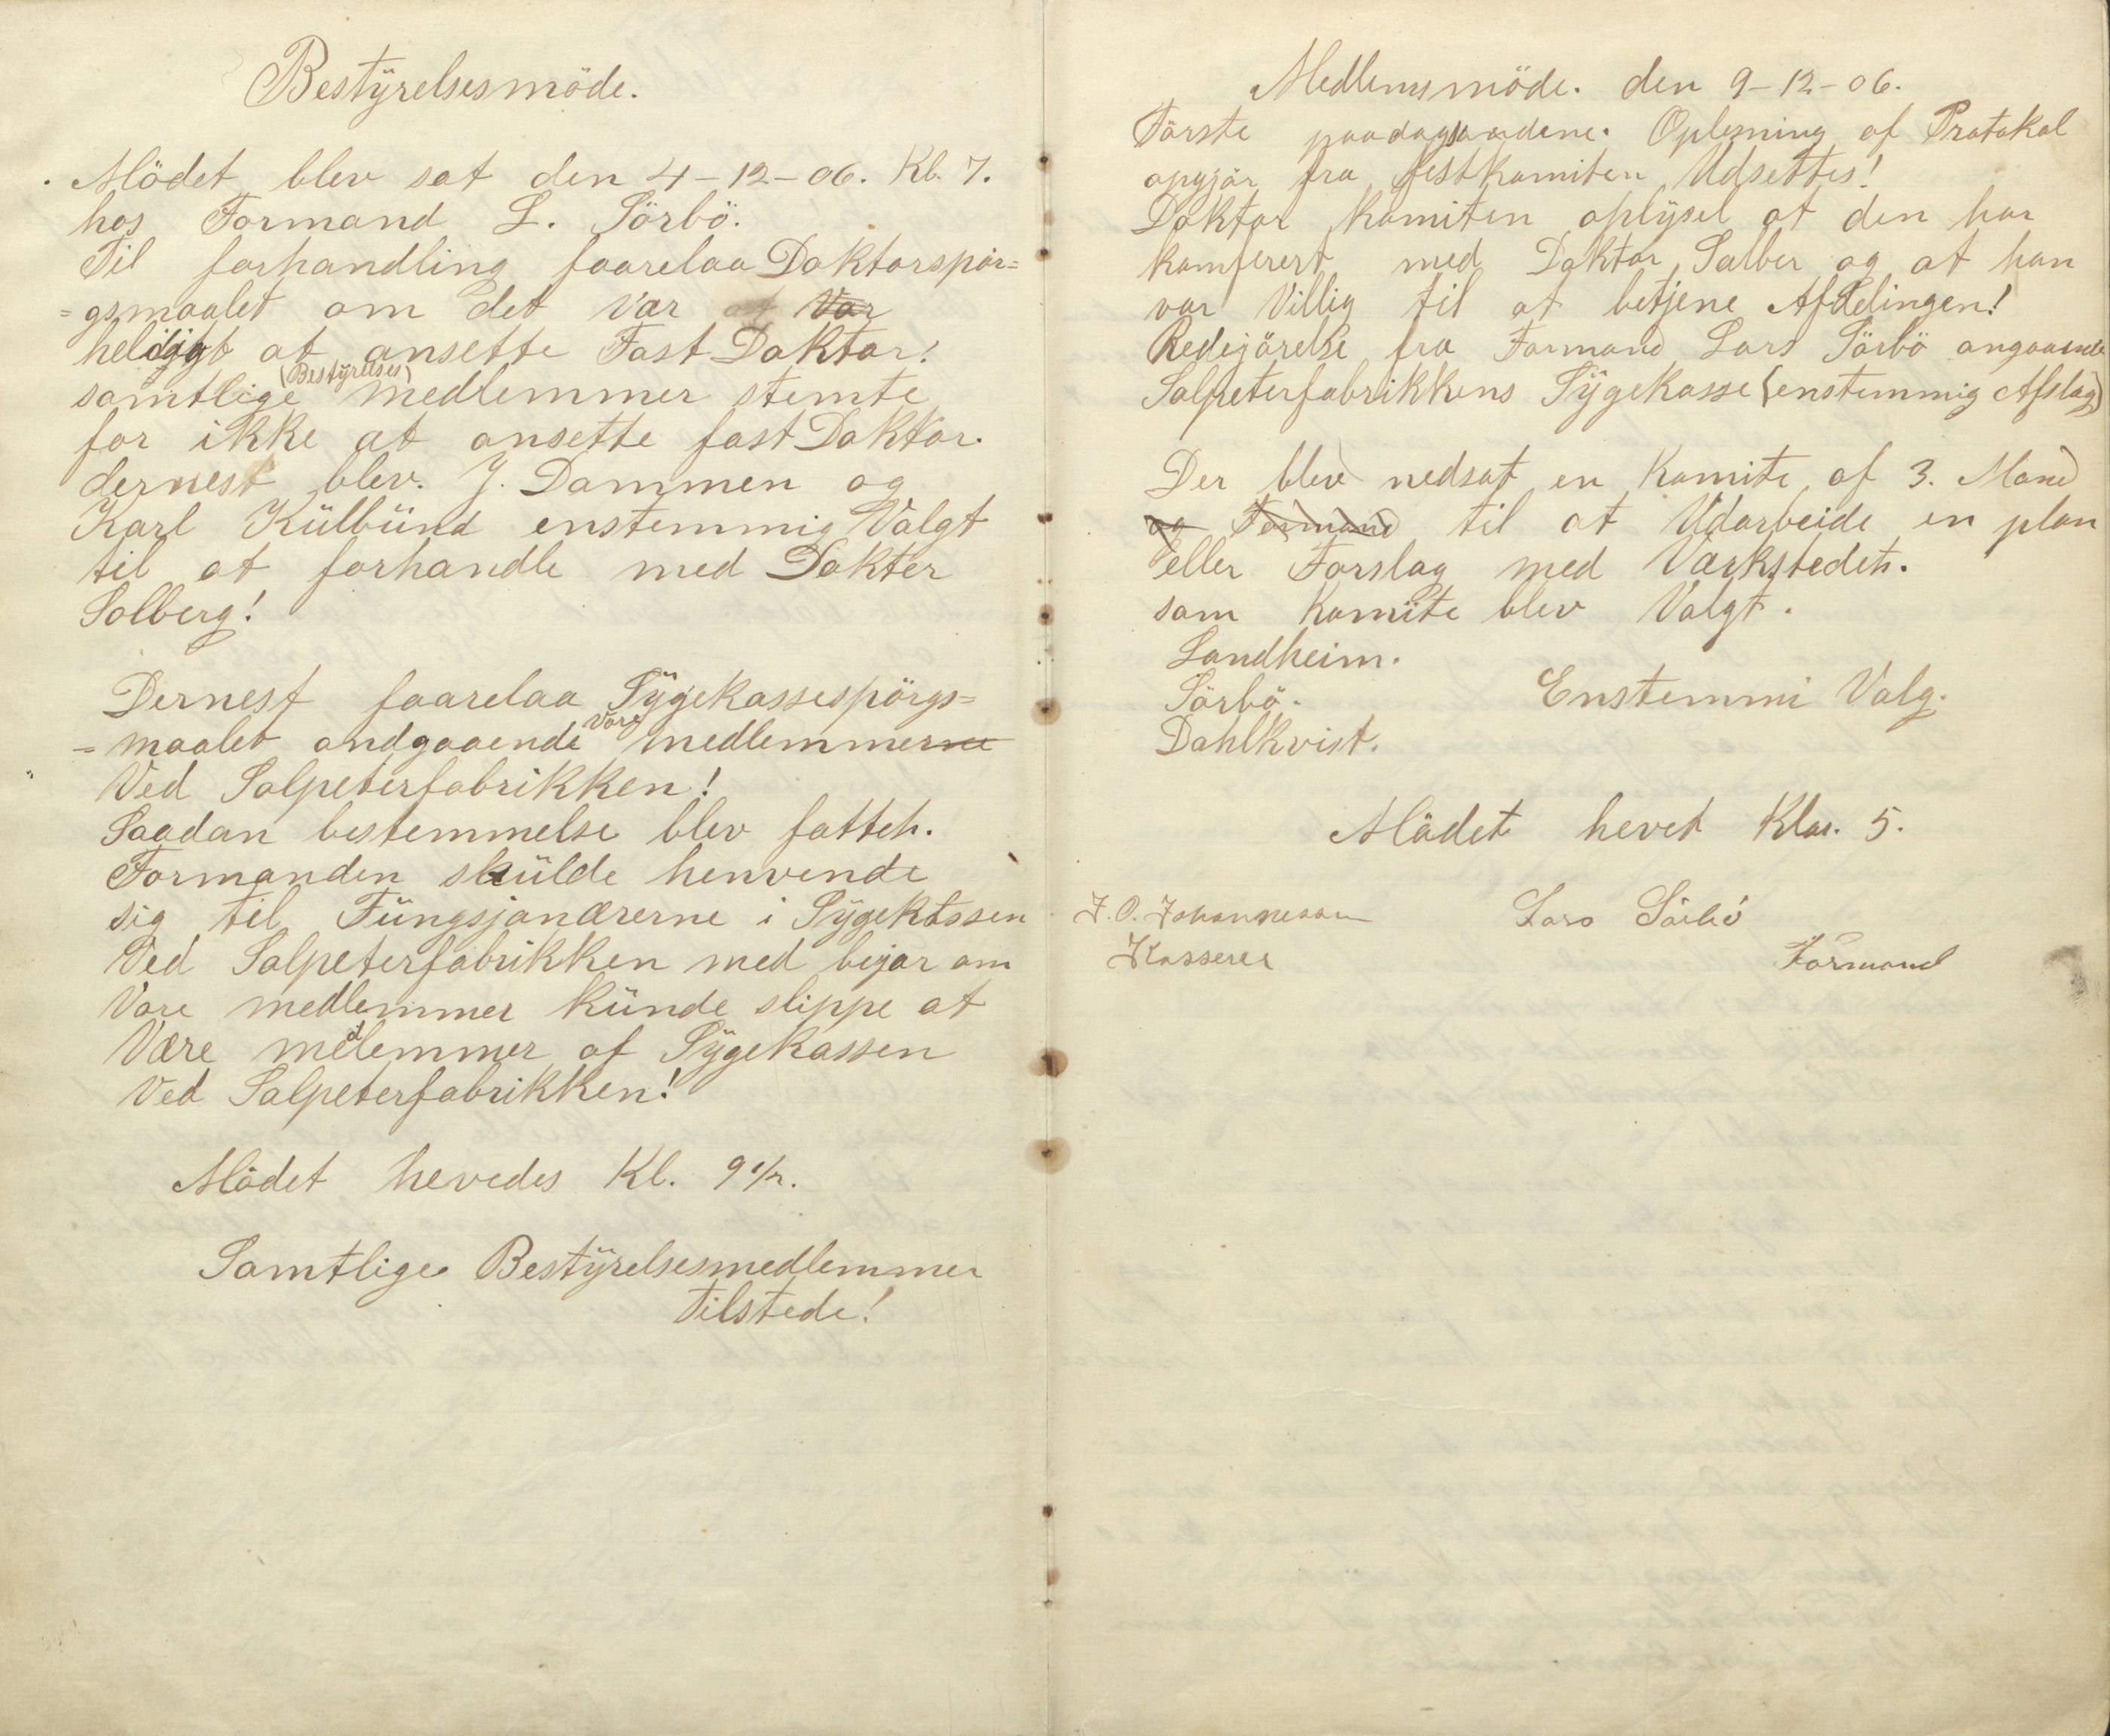 Bestÿrelsesmöde.
Mödet blev sat den 4-12-06. Kl. 7.
hos Formand L. Sörbö.
Til forhandling foorelaa Doktorspör=
=gsmaalet om det var at var
heldigt at ansette Fast Doktor!
samtlige (Bestÿrelses) medlemmer stemte
for ikke at ansette fast Doktor.
dernest blev. J. Dammen og
Karl Külbünd enstemmig Valgt
til at forhandle med Dokter
Solberg!
Dernest foorelaa Sÿgekassespörgs=
=maalet andgaaende Vore medlemmerne
Ved Salpeterfabrikken!
Saadan bestemmelse blev fatteh.
Formanden skülde henvende
sig til Füngsjonærerne i Sÿgekassen
Ved Salpeterfabrikken med bejær om
Vore medlemmer künde slippe at
Være medlemmer af Sÿgekassen
Ved Salpeterfabrikken!
Mödet hevedes Kl. 9 1/2.
Samtlige Bestÿrelsesmedlemmer
Tilstede!
Medlemsmöde. den 9-12-06.
Förste Oplesning af Protokol
opgjör fra festkomiten Udsettes!
Doktor komiten oplÿsel at den har
konferert med Doktor Salber og at han
var Villig til at betjene Afdelingen!
Redejörelse fra Formand Lars Sörbö angaaende
Salpeterfabrikkens Sÿgekasse (enstemmig Afslag)
Der blev nedsat en Komite af 3. Mand
og Formand til at Udarbeide en plan
eller Forslag med Værkstedeh.
som Komite blev Valgt.
Landheim.
Sörbö. Enstemmi Valg.
Dahlkvist.
Mödet hevet Klor. 5.
J. O. Johannesson Lars Sörbö
Kasserer Formand